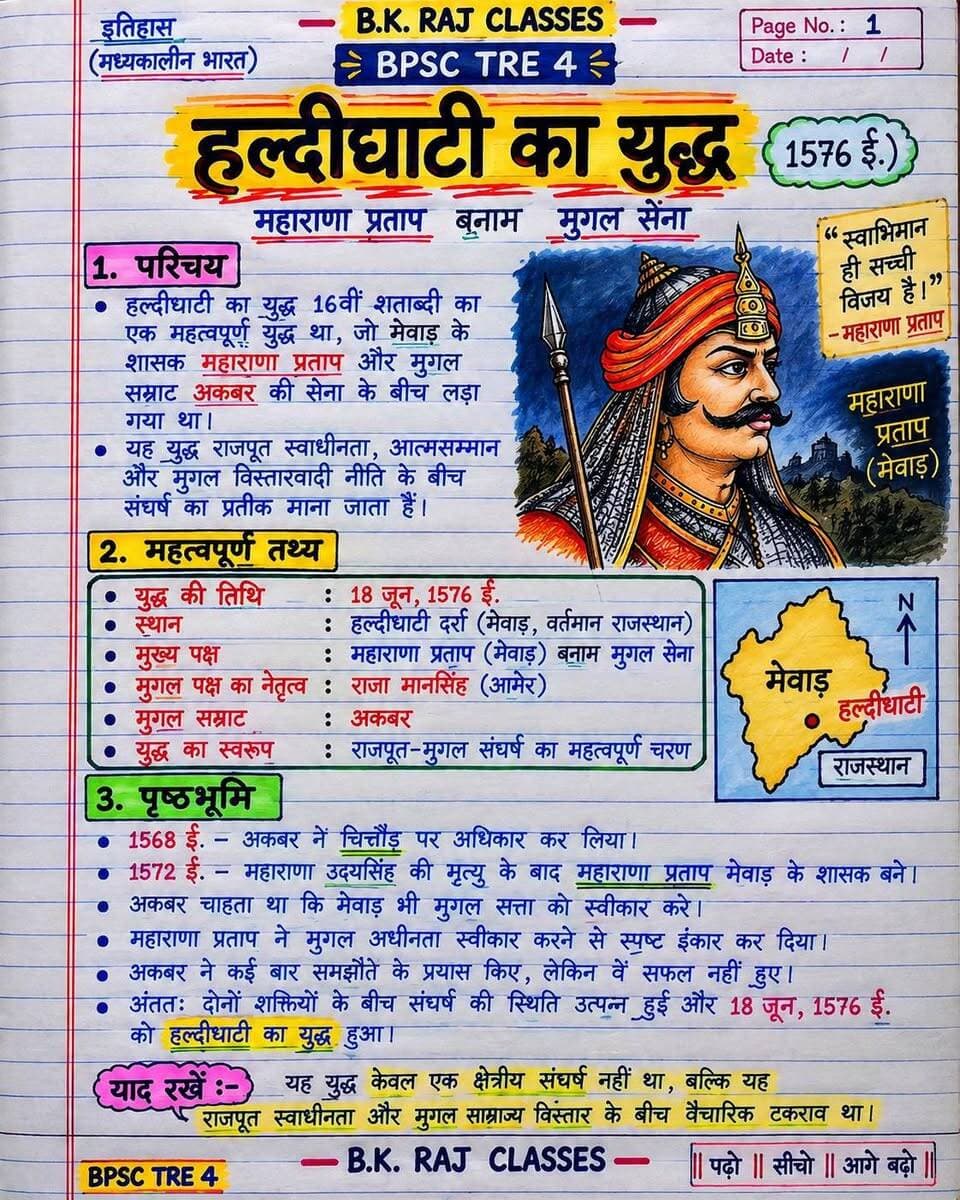 इतिहास
(मध्यकालीन भारत)
B.K. RAJ CLASSES
BPSC TRE 4
Page No.: 1
Date : / /
हल्दीघाटी का युद्ध
1576 ई.)
महाराणा प्रताप बनाम मुगल सेंना
1. परिचय
• हल्दीघाटी का युद्ध 16वीं शताब्दी का
एक महत्वपूर्ण युद्ध था, जो मेवाड़ के
शासक महाराणा प्रताप और मुगल
सम्राट अकबर की सेना के बीच लड़ा
गया था।
• यह युद्ध राजपूत स्वाधीनता, आत्मसम्मान
और मुगल विस्तारवादी नीति के बीच
संघर्ष का प्रतीक माना जाता हैं।
“ स्वाभिमान
ही सच्ची
विजय है।”
- महाराणा प्रताप
महाराणा
प्रताप
(मेवाड़)
2. महत्वपूर्ण तथ्य
• युद्ध की तिथि : 18 जून, 1576 ई.
• स्थान : हल्दीघाटी दर्रा (मेवाड़, वर्तमान राजस्थान)
• मुख्य पक्ष : महाराणा प्रताप (मेवाड़) बनाम मुगल सेना
• मुगल पक्ष का नेतृत्व : राजा मानसिंह (आमेर)
• मुगल सम्राट : अकबर
• युद्ध का स्वरूप : राजपूत-मुगल संघर्ष का महत्वपूर्ण चरण
N
मेवाड़
हल्दीघाटी
राजस्थान
3. पृष्ठभूमि
• 1568 ई. – अकबर नें चित्तौड़ पर अधिकार कर लिया।
• 1572 ई. – महाराणा उदयसिंह की मृत्यु के बाद महाराणा प्रताप मेवाड़ के शासक बने।
• अकबर चाहता था कि मेवाड़ भी मुगल सत्ता को स्वीकार करे।
• महाराणा प्रताप ने मुगल अधीनता स्वीकार करने से स्पष्ट इंकार कर दिया।
• अकबर ने कई बार समझौते के प्रयास किए, लेकिन वें सफल नहीं हुए।
• अंततः दोनों शक्तियों के बीच संघर्ष की स्थिति उत्पन्न हुई और 18 जून, 1576 ई.
को हल्दीघाटी का युद्ध हुआ।
याद रखें :-
यह युद्ध केवल एक क्षेत्रीय संघर्ष नहीं था, बल्कि यह
राजपूत स्वाधीनता और मुगल साम्राज्य विस्तार के बीच वैचारिक टकराव था।
BPSC TRE 4
B.K. RAJ CLASSES
|| पढ़ो || सीचो || आगे बढ़ो ||